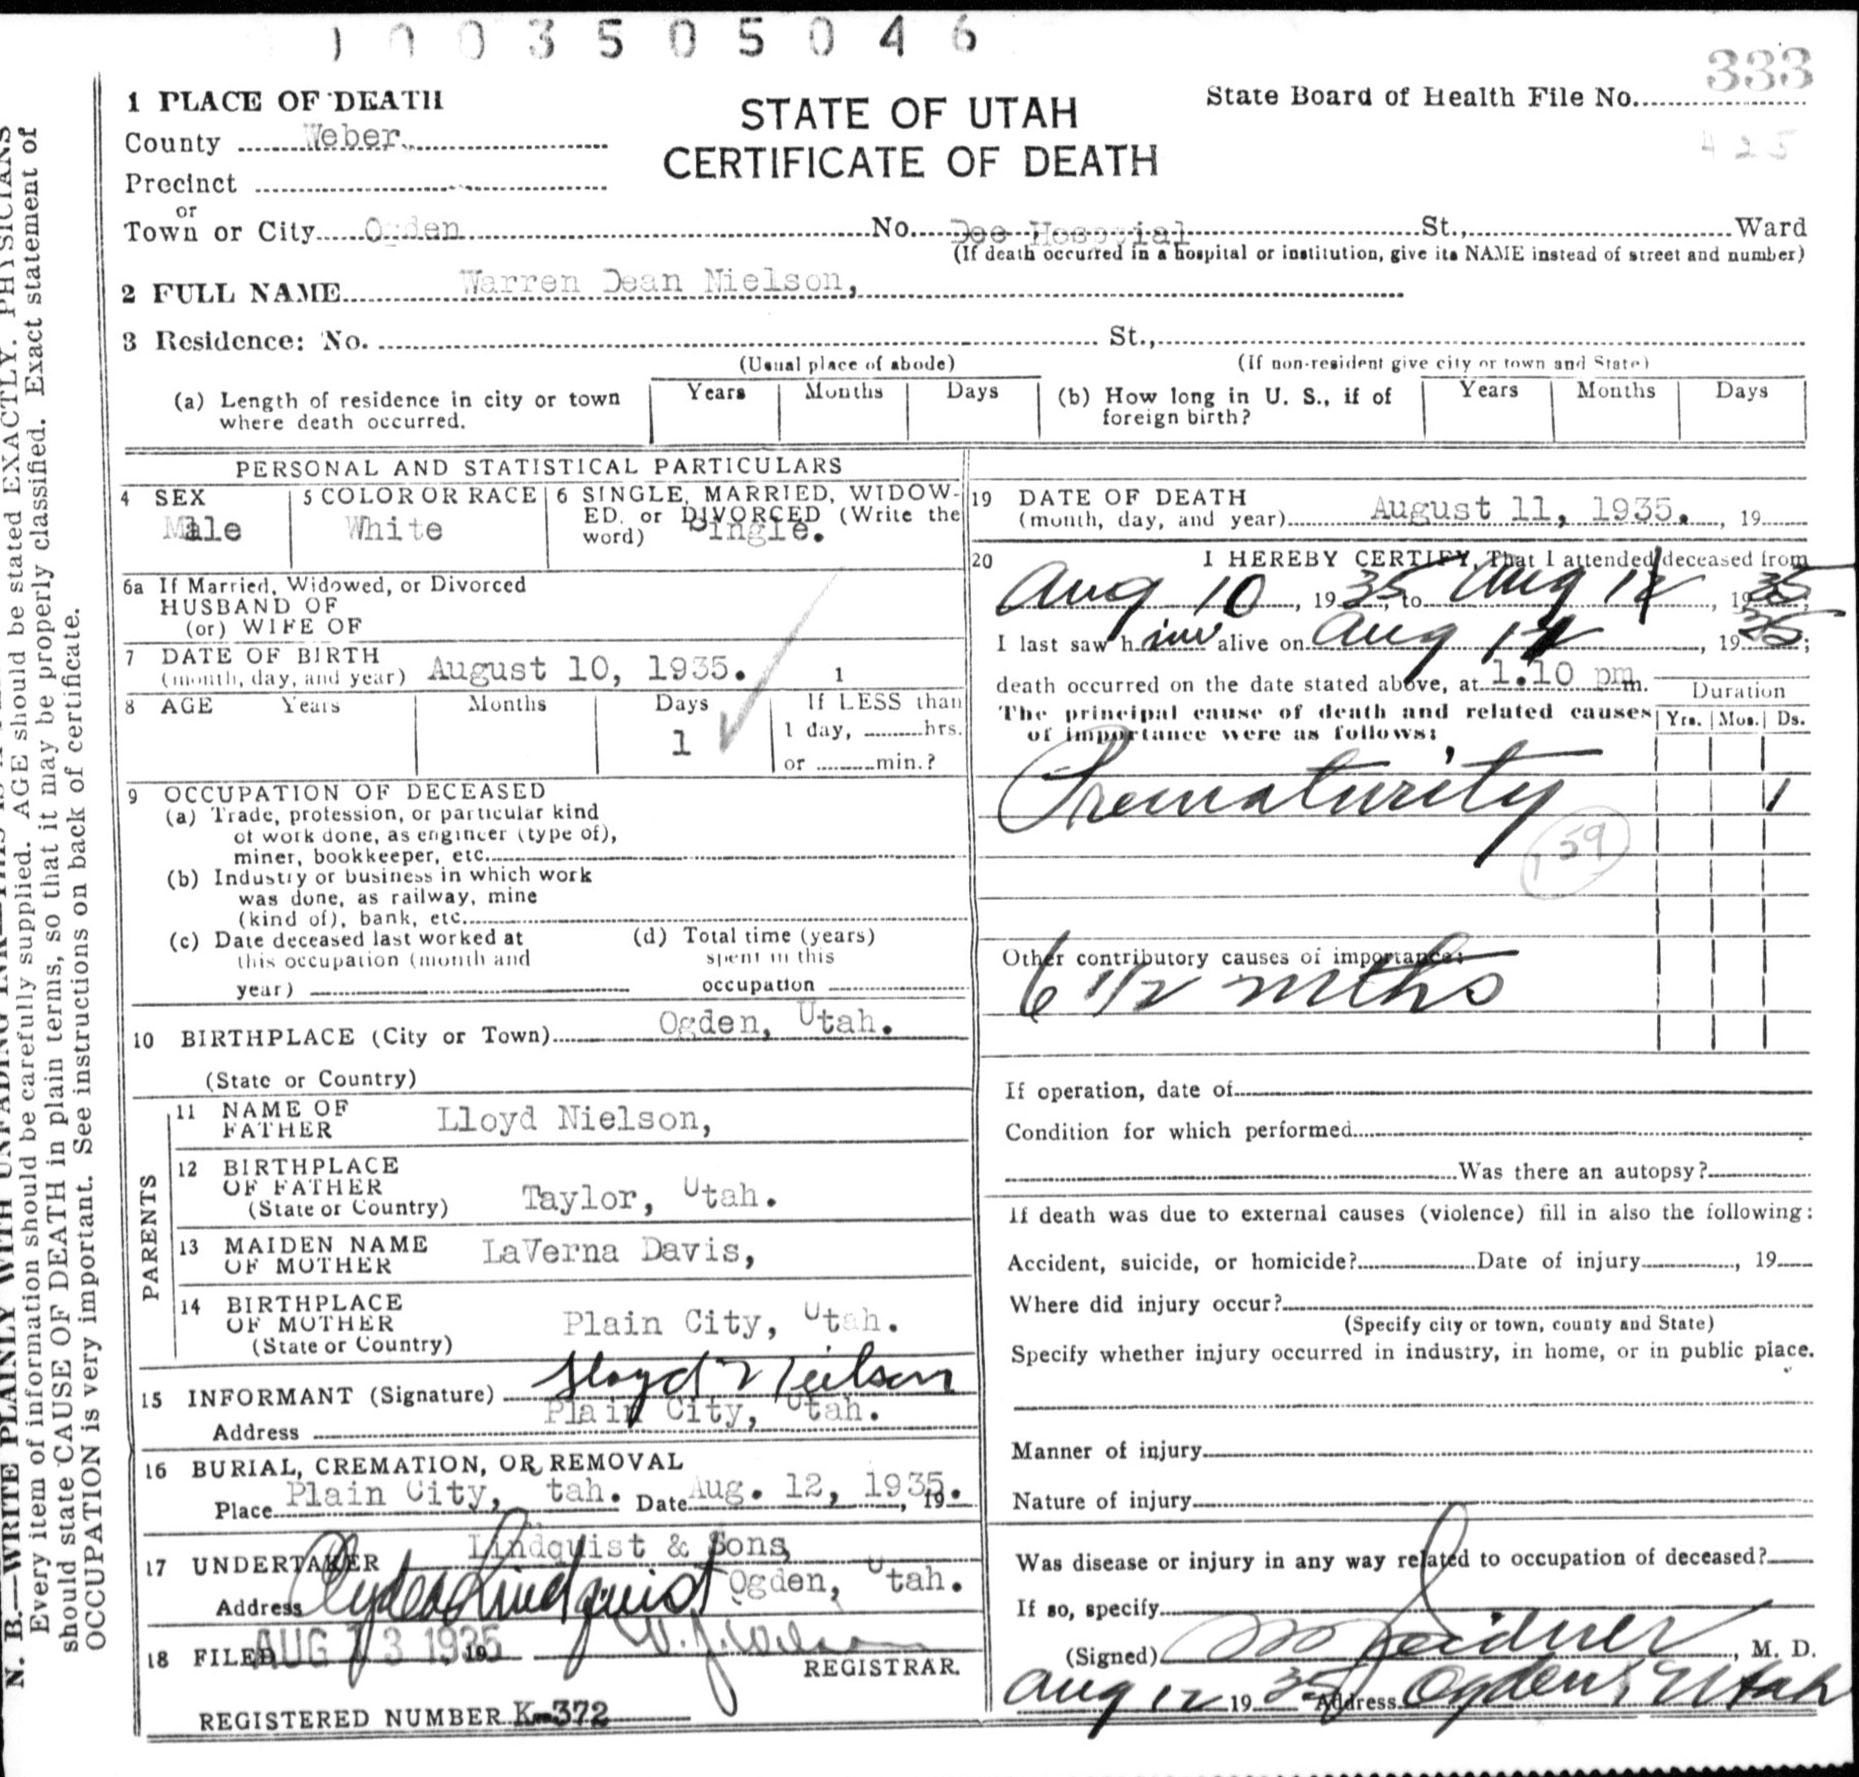 1003505046
333
1 PLACE OF DEATH
STATE OF UTAH
CERTIFICATE OF DEATH
State Board of Health File No.
425
County Weber
Precinct
or
Town or City Ogden No. Dee Hospial St., Ward
(If death occurred in a hospital or institution, give its NAME instead of street and number)
2 FULL NAME Warren Dean Nielson,
3 Residence: No. St.,
(Usual place of abode) (If non-resident give city or town and State)
(a) Length of residence in city or town where death occurred. Years Months Days
(b) How long in U. S., if of foreign birth? Years Months Days
PERSONAL AND STATISTICAL PARTICULARS
4 SEX
Male
5 COLOR OR RACE
White
6 SINGLE, MARRIED, WIDOW-
ED, or DIVORCED (Write the
word) Single.
6a If Married, Widowed, or Divorced
HUSBAND OF
(or) WIFE OF
7 DATE OF BIRTH
(month, day, and year) August 10, 1935. 1
8 AGE Years Months Days If LESS than
1 1 day, hrs.
or min.?
9 OCCUPATION OF DECEASED
(a) Trade, profession, or particular kind
of work done, as engineer (type of),
miner, bookkeeper, etc.
(b) Industry or business in which work
was done, as railway, mine
(kind of), bank, etc.
(c) Date deceased last worked at
this occupation (month and
year)
(d) Total time (years)
spent in this
occupation
10 BIRTHPLACE (City or Town) Ogden, Utah.
(State or Country)
PARENTS
11 NAME OF
FATHER Lloyd Nielson,
12 BIRTHPLACE
OF FATHER
(State or Country) Taylor, Utah.
13 MAIDEN NAME
OF MOTHER LaVerna Davis,
14 BIRTHPLACE
OF MOTHER
(State or Country) Plain City, Utah.
15 INFORMANT (Signature) Lloyd Neilson
Address Plain City, Utah.
16 BURIAL, CREMATION, OR REMOVAL
Place Plain City, tah. Date Aug. 12, 1935. , 19
17 UNDERTAKER Lindquist & Sons,
Address Clyde Lindquist Ogden, Utah.
18 FILED AUG 13 1935 , 19 W. J. Wilson
REGISTRAR.
REGISTERED NUMBER K-372
19 DATE OF DEATH
(month, day, and year) August 11, 1935. , 19
20 I HEREBY CERTIFY, That I attended deceased from
Aug 10, 1935, to Aug 11, 1935,
I last saw him alive on Aug 11, 1935;
death occurred on the date stated above, at 1.10 pm m.
The principal cause of death and related causes
of importance were as follows:
Duration
Yrs. Mos. Ds.
Prematurity 1
159
Other contributory causes of importance:
6 1/2 mths
If operation, date of
Condition for which performed
Was there an autopsy?
If death was due to external causes (violence) fill in also the following:
Accident, suicide, or homicide? Date of injury , 19
Where did injury occur?
(Specify city or town, county and State)
Specify whether injury occurred in industry, in home, or in public place.
Manner of injury
Nature of injury
Was disease or injury in any way related to occupation of deceased?
If so, specify
(Signed) Seidner, M. D.
Aug 12 1935 Address Ogden, Utah
N. B.—WRITE PLAINLY WITH UNFADING INK—THIS IS A
Every item of information should be carefully supplied. AGE should be stated EXACTLY. PHYSICIANS
should state CAUSE OF DEATH in plain terms, so that it may be properly classified. Exact statement of
OCCUPATION is very important. See instructions on back of certificate.